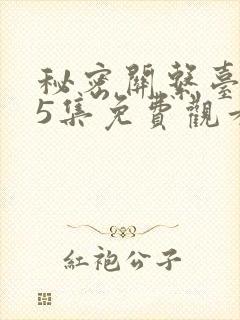 秘密關繫臺
5集免費觀看
紅袍公子